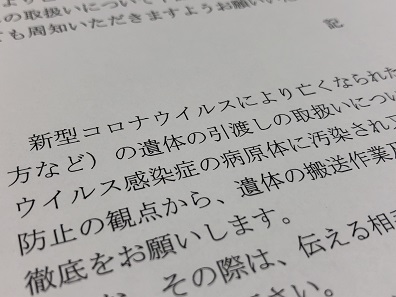 の取扱いについて
も周知いただきますようお願いいた
記
新型コロナウイルスにより亡くなられた
方など）の遺体の引渡しの取扱いについ
ウイルス感染症の病原体に汚染され
防止の観点から、遺体の搬送作業
徹底をお願いします。
その際は、伝える相
さい。